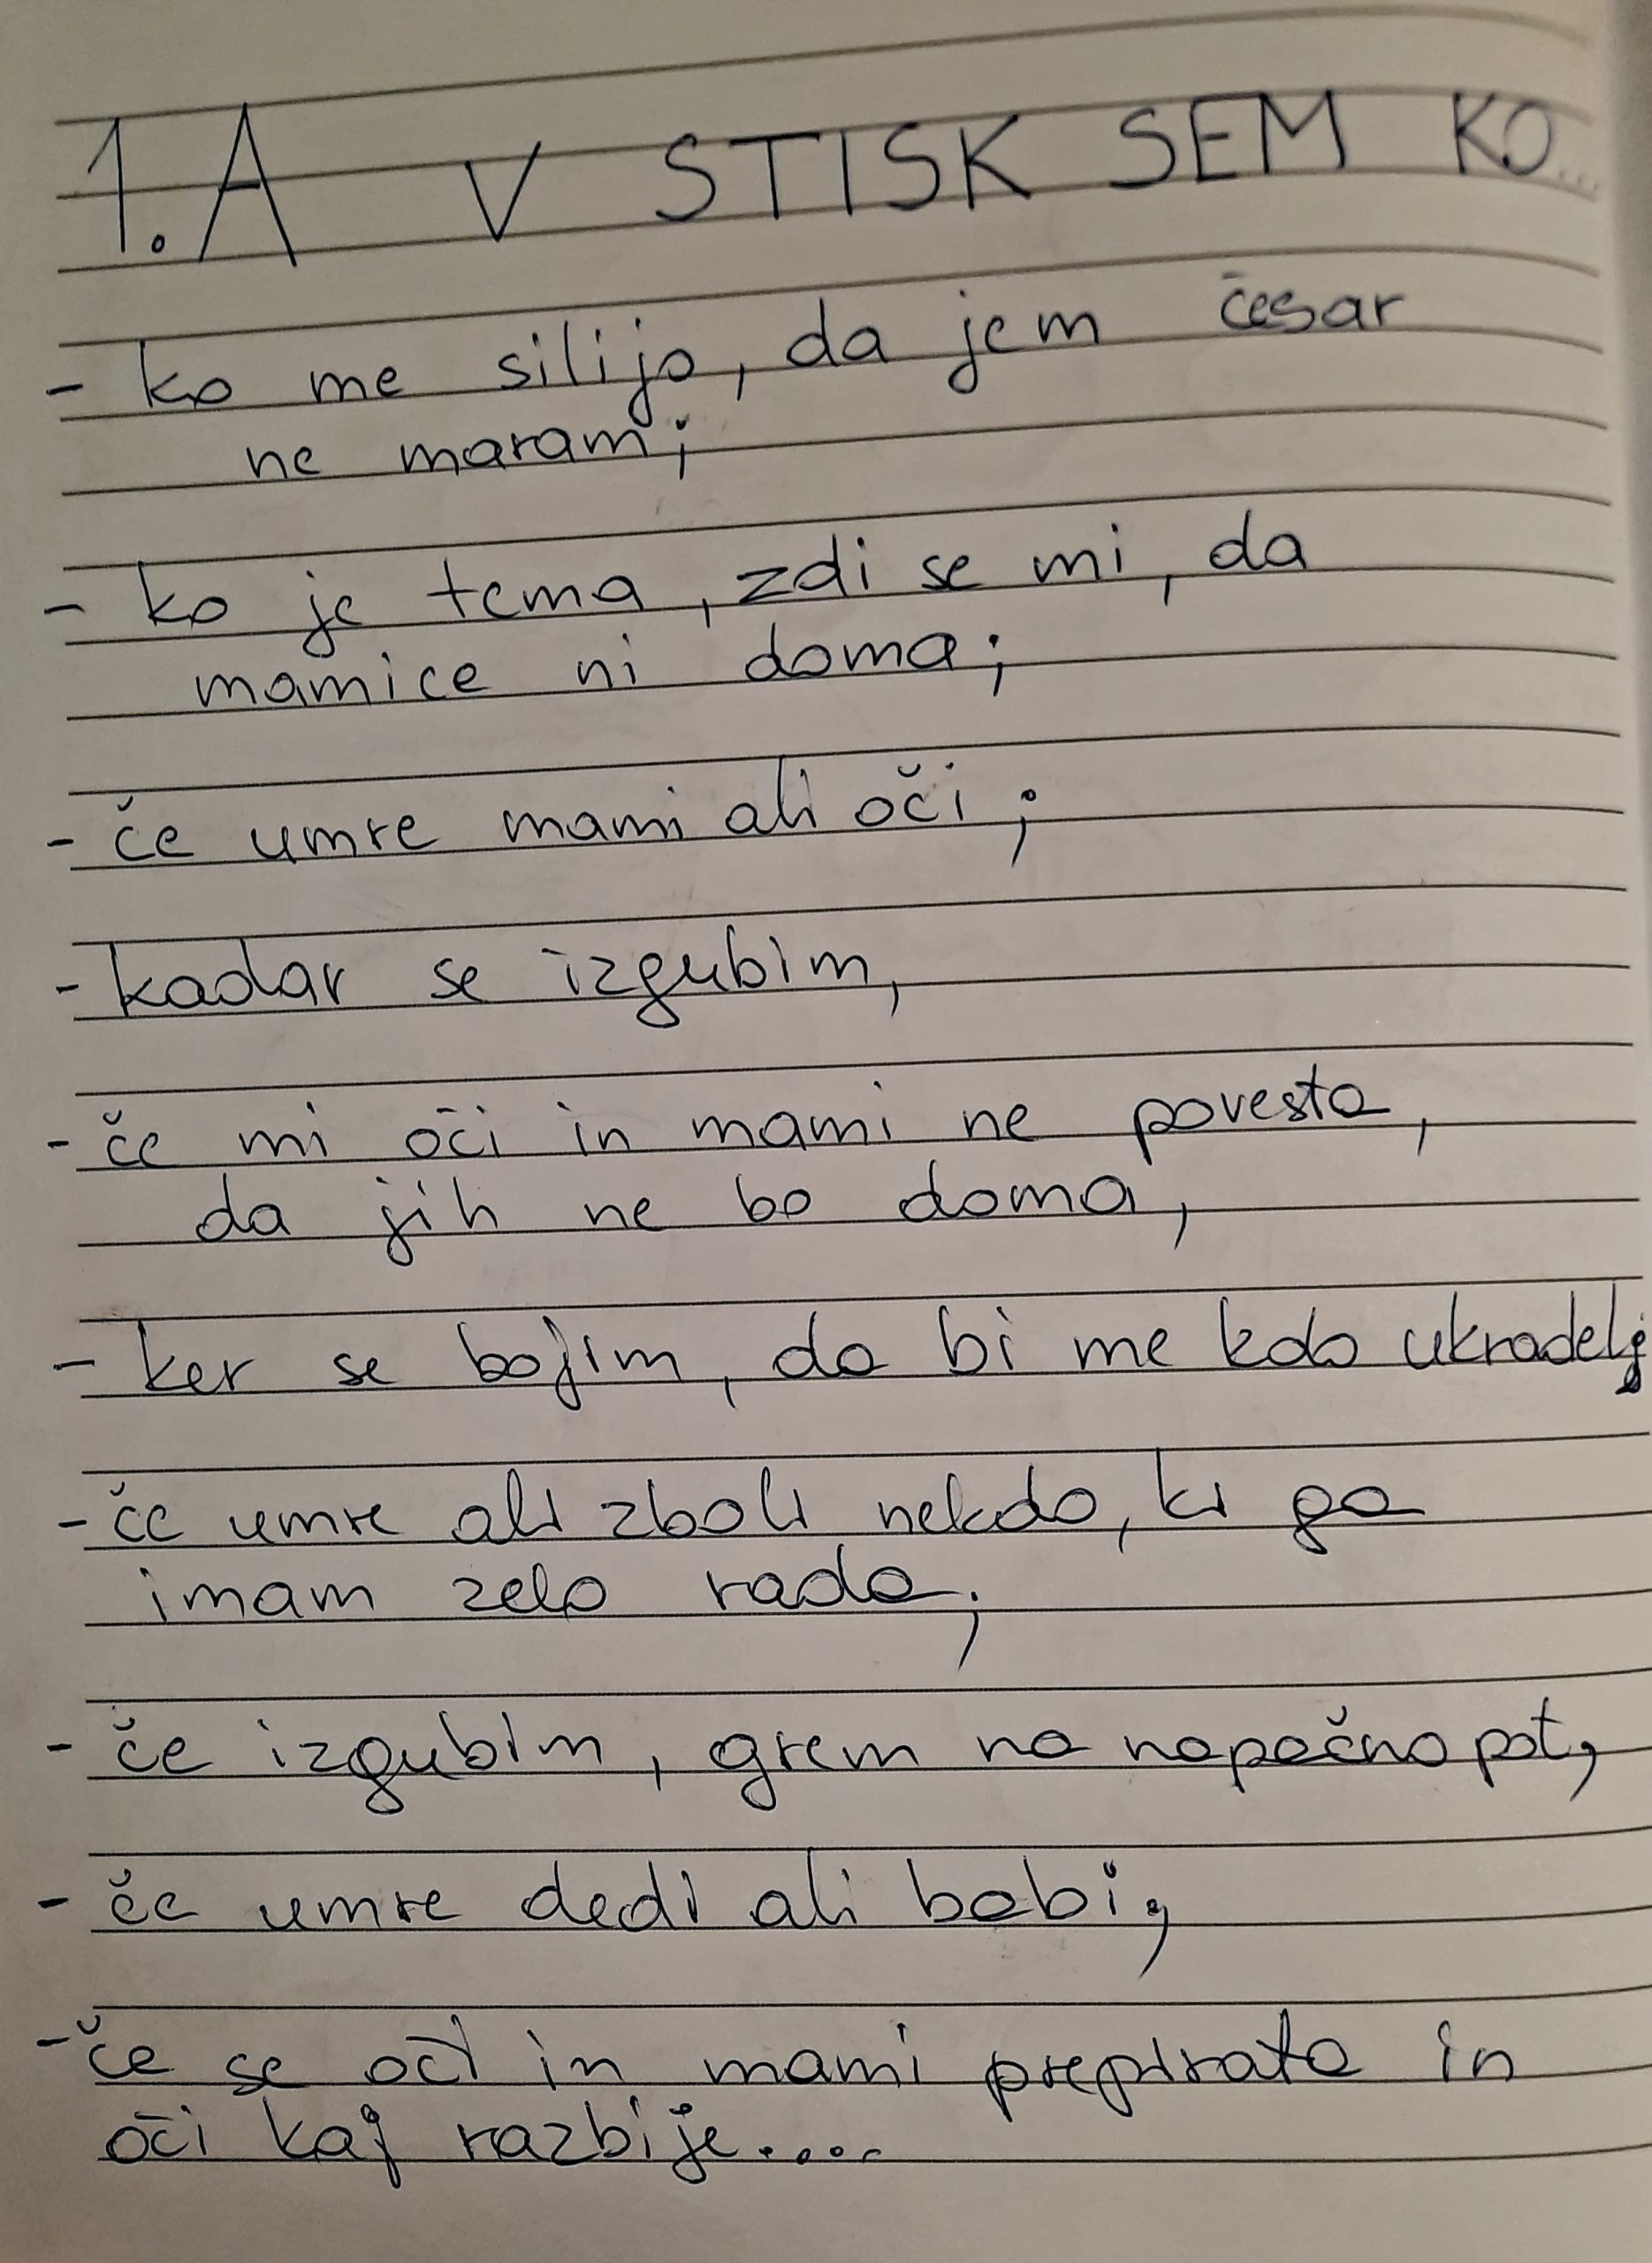 1.A V STISK SEM KO...
- ko me silijo, da jem česar
ne maram;
- ko je tema, zdi se mi, da
mamice ni doma;
- če umre mami ali oči;
- kadar se izgubim,
- če mi oči in mami ne povesta,
da jih ne bo doma,
- ker se bojim, da bi me kdo ukradel;
- če umre ali zboli nekdo, ki ga
imam zelo rada;
- če izgubim, grem na napačno pot,
- če umre dedi ali babi;
- če se oči in mami prepirata in
oči kaj razbije....